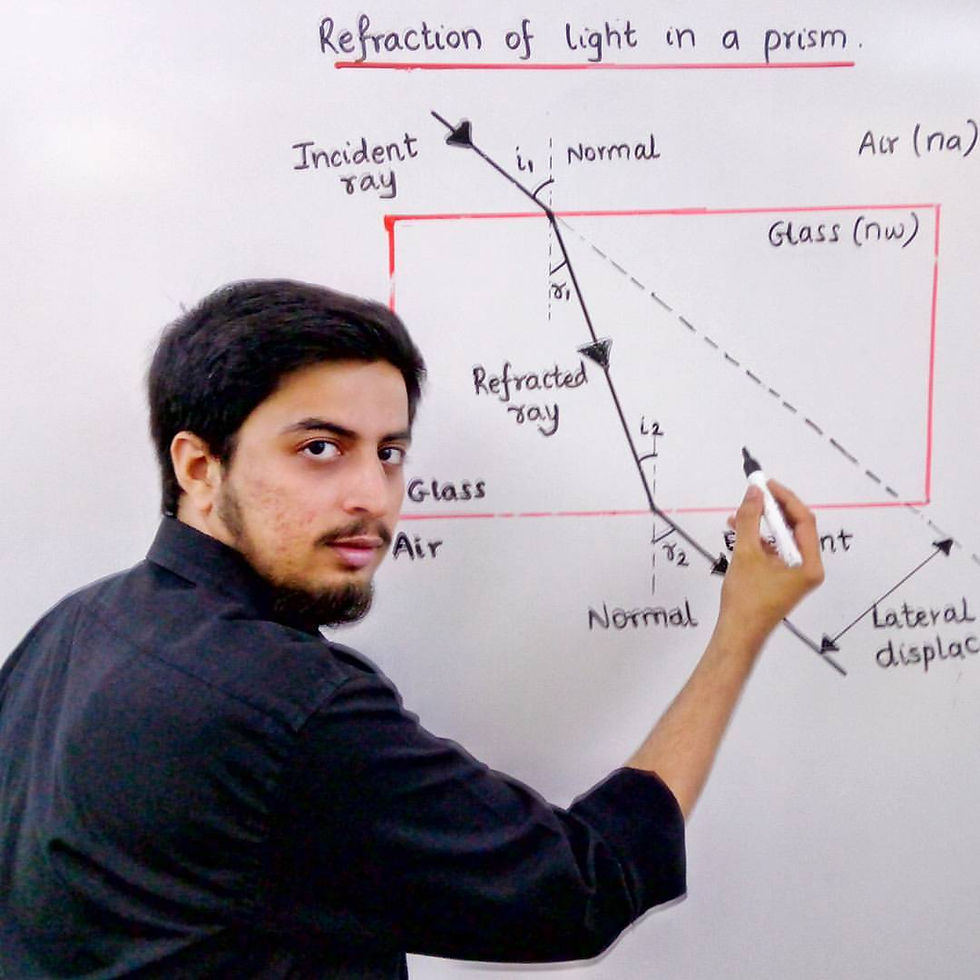 Refraction of light in a prism.
Incident
ray
i₁
Normal
Air (na)
Glass (nw)
r₁
Refracted
ray
i₂
Glass
Air
r₂
Normal
Lateral
displac